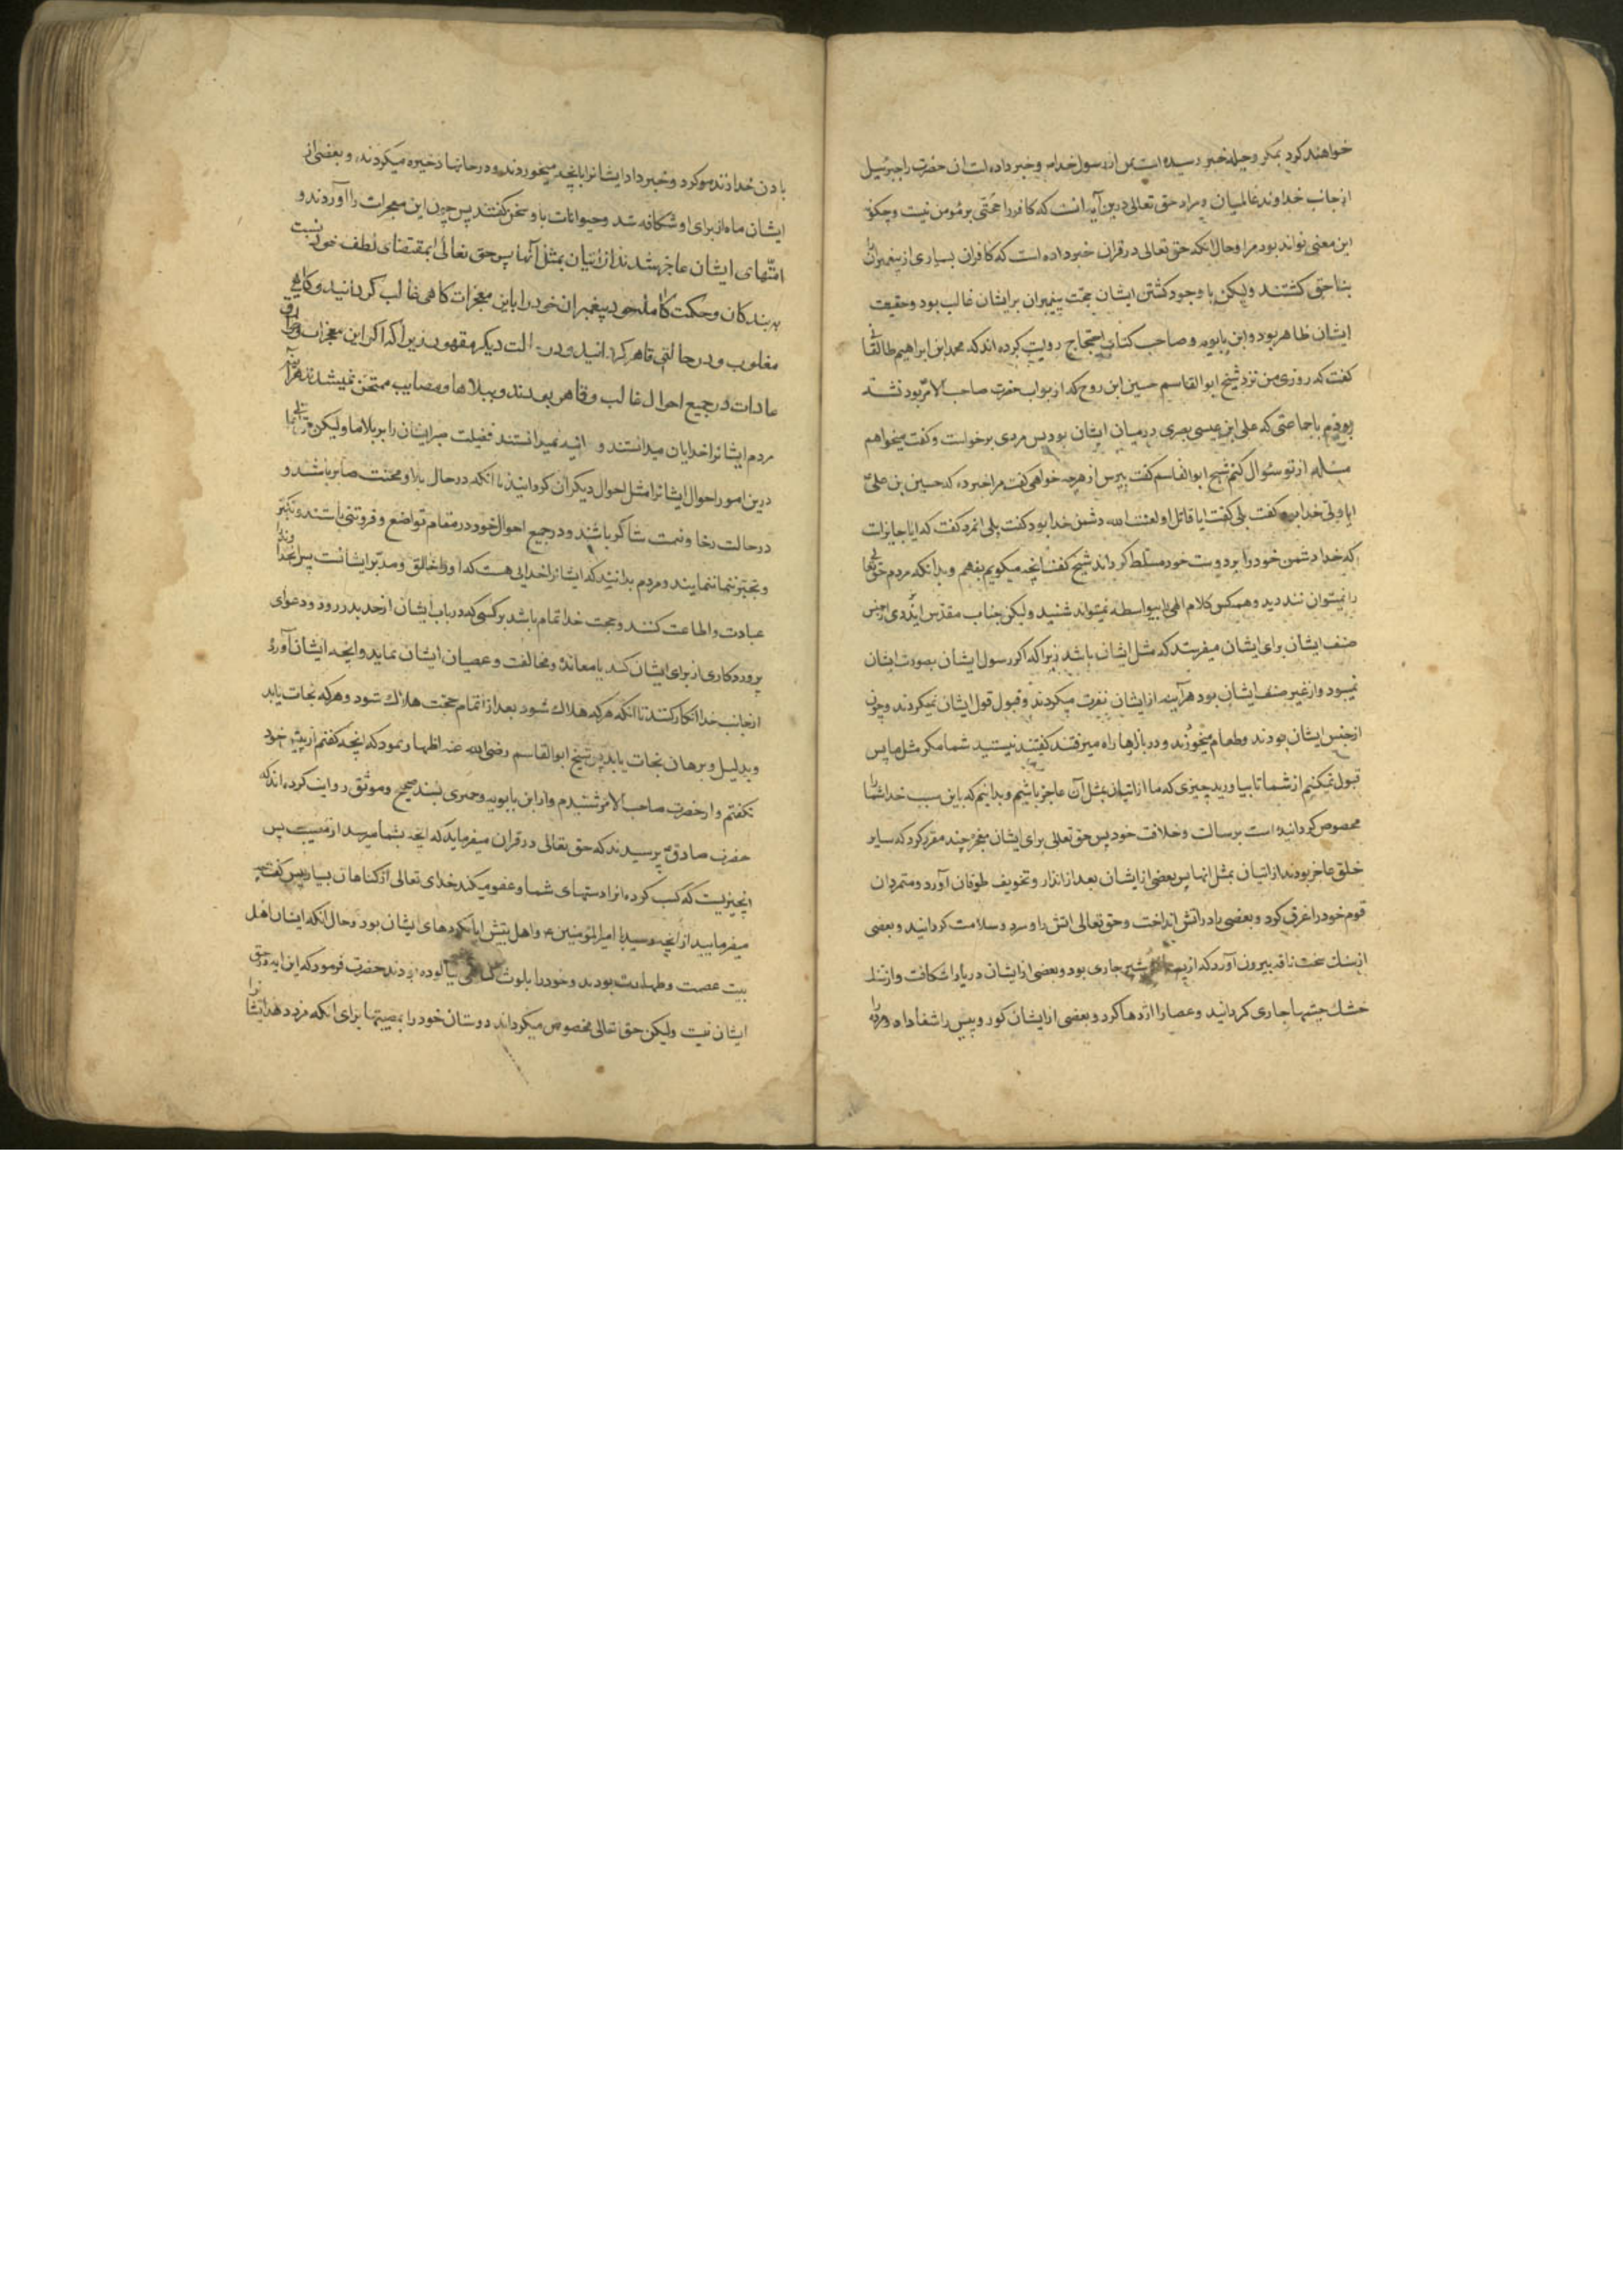 خواهند کرد بمکر و حیله خبر رسیده است بمن از رسول خدا ص و خبر داده است ان حضرت را جبرئیل
از جانب خداوند عالمیان و مراد حق تعالی درین آیه انست که کافر را حجتی بر مومن نیست و چکونه
این معنی تواند بود مراد و حال انکه حق تعالی در قران خبر داده است که کافران بسیاری از پیغمبران را
بناحق کشتند ولیکن با وجود کشتن ایشان حجت پیغمبران بر ایشان غالب بود و حقیقت
ایشان ظاهر بود و ابن بابویه و صاحب کتاب احتجاج روایت کرده اند که محمد ابن ابراهیم طالقانی
کفت که روزی من نزد شیخ ابو القاسم حسین ابن روح که از بواب حضرت صاحب الامر بود نشسته
بودم با جماعتی که علی ابن عیسی بصری درمیان ایشان بود پس مردی برخواست و کفت میخواهم
مسئله از تو سئوال کنم شیخ ابو القاسم کفت بپرس از هرچه خواهی کفت مرا خبر ده که حسین بن علی
ایا ولی خدا بود کفت بلی کفت ایا قاتل او لعنت الله دشمن خدا بود کفت بلی انمرد کفت که ایا جایز است
که خدا دشمن خود را بر دوست خود مسلط کرداند شیخ کفت انچه میکویم بفهم و بدانکه مردم حق تعالی
را نمیتوانند دید و همه کس کلام الهی را بیواسطه نمیتواند شنید ولیکن جناب مقدس ایزدی از جنس
صنف ایشان برای ایشان میفرستد که مثل ایشان باشد زیرا که اکر رسول ایشان بصورت ایشان
نمیبود و از غیر صنف ایشان بود هر آینه از ایشان نفرت میکردند و قبول قول ایشان نمیکردند و چون
از جنس ایشان بودند و طعام میخوردند و در بازارها راه میرفتند کفتند نیستید شما مکر مثل ما پس
قبول نمیکنیم از شما تا بیاورید چیزی که ما از اتیان بمثل آن عاجز باشیم و بدانیم که باین سبب خدا شما را
مخصوص کردانیده است برسالت و خلافت خود پس حق تعالی برای ایشان معجزه چند مقرر کرد که سایر
خلق عاجز بودند از اتیان بمثل انها پس بعضی از ایشان بعد از انذار و تخویف طوفان آورد و متمردان
قوم خود را غرق کرد و بعضی را در اتش انداخت و حق تعالی اتش را و سرد و سلامت کردانید و بعضی
از سنک سخت ناقه بیرون آورد که از شیر جاری بود و بعضی از ایشان دریا را شکافت و از سنک
خشک چشمها جاری کردانید و عصا را اژدها کرد و بعضی از ایشان کور و پیس را شفا داد و مرده را
باذن خدا زنده کرد و خبر داد ایشانرا بانچه میخوردند و در خانها ذخیره میکردند و بعضی از
ایشان ماه از برای او شکافته شد و حیوانات با و سخن کفتند پس چون این معجزات را آوردند و
امتهای ایشان عاجز شدند از اتیان بمثل آنها پس حق تعالی بمقتضای لطف خود نسبت
به بندکان و حکمت کامله خود پیغمبران خود را با این معجزات کاهی غالب کردانید و کاهی
مغلوب و در حالتی قاهر کردانید و در حالت دیکر مقهور زیرا که اکر این معجزات و خوارق
عادات در جمیع احوال غالب و قاهر بودند و ببلاها و مصایب ممتحن نمیشدند هر آینه
مردم ایشانرا خدایان میدانستند و انیه نمیدانستند فضیلت صبر ایشان را بر بلاها ولیکن حق تعالی
درین امور احوال ایشانرا مثل احوال دیکران کردانید تا انکه در حال بلا و محنت صابر باشند و
در حالت رخا و نعمت شاکر باشند و در جمیع احوال خود در مقام تواضع و فروتنی باشند و تکبر
و تجبر ننمایند و مردم بدانند که ایشانرا خدایی هست که او خالق و مدبر ایشانست پس خدا را
عبادت و اطاعت کنند و حجت خدا تمام باشد بر کسی که در باب ایشان از حد بدر رود و دعوای
پروردکاری از برای ایشان کند یا معانده و مخالفت و عصیان ایشان نماید و انچه ایشان آورده
از جانب خدا انکار کنند تا انکه هرکه هلاک شود بعد از اتمام حجت هلاک شود و هرکه نجات یابد
و بدلیل و برهان نجات یابد پس شیخ ابو القاسم رضی الله عنه اظهار نمود که انچه کفتم از پیش خود
نکفتم و از حضرت صاحب الامر شنیدم و از ابن بابویه و حمیری بسند صحیح و موثق روایت کرده اند که
حضرت صادق پرسیدند که حق تعالی در قران میفرماید که انچه بشما میرسد از مصیبت پس
انچیزیست که کسب کرده انرا دستهای شما و عفو میکند خدای تعالی از کناهان بسیار پس کفت چه
میفرمایید از انچه رسید با امیر المؤمنین ع و اهل بیتش ایا بکردهای ایشان بود و حال انکه ایشان اهل
بیت عصمت و طهارت بودند و خود را بلوث کناهی نیالوده بودند حضرت فرمود که این ایه در حق
ایشان نیست ولیکن حق تعالی مخصوص میکرداند دوستان خود را بمصیبتها برای انکه مزد دهد ایشانرا